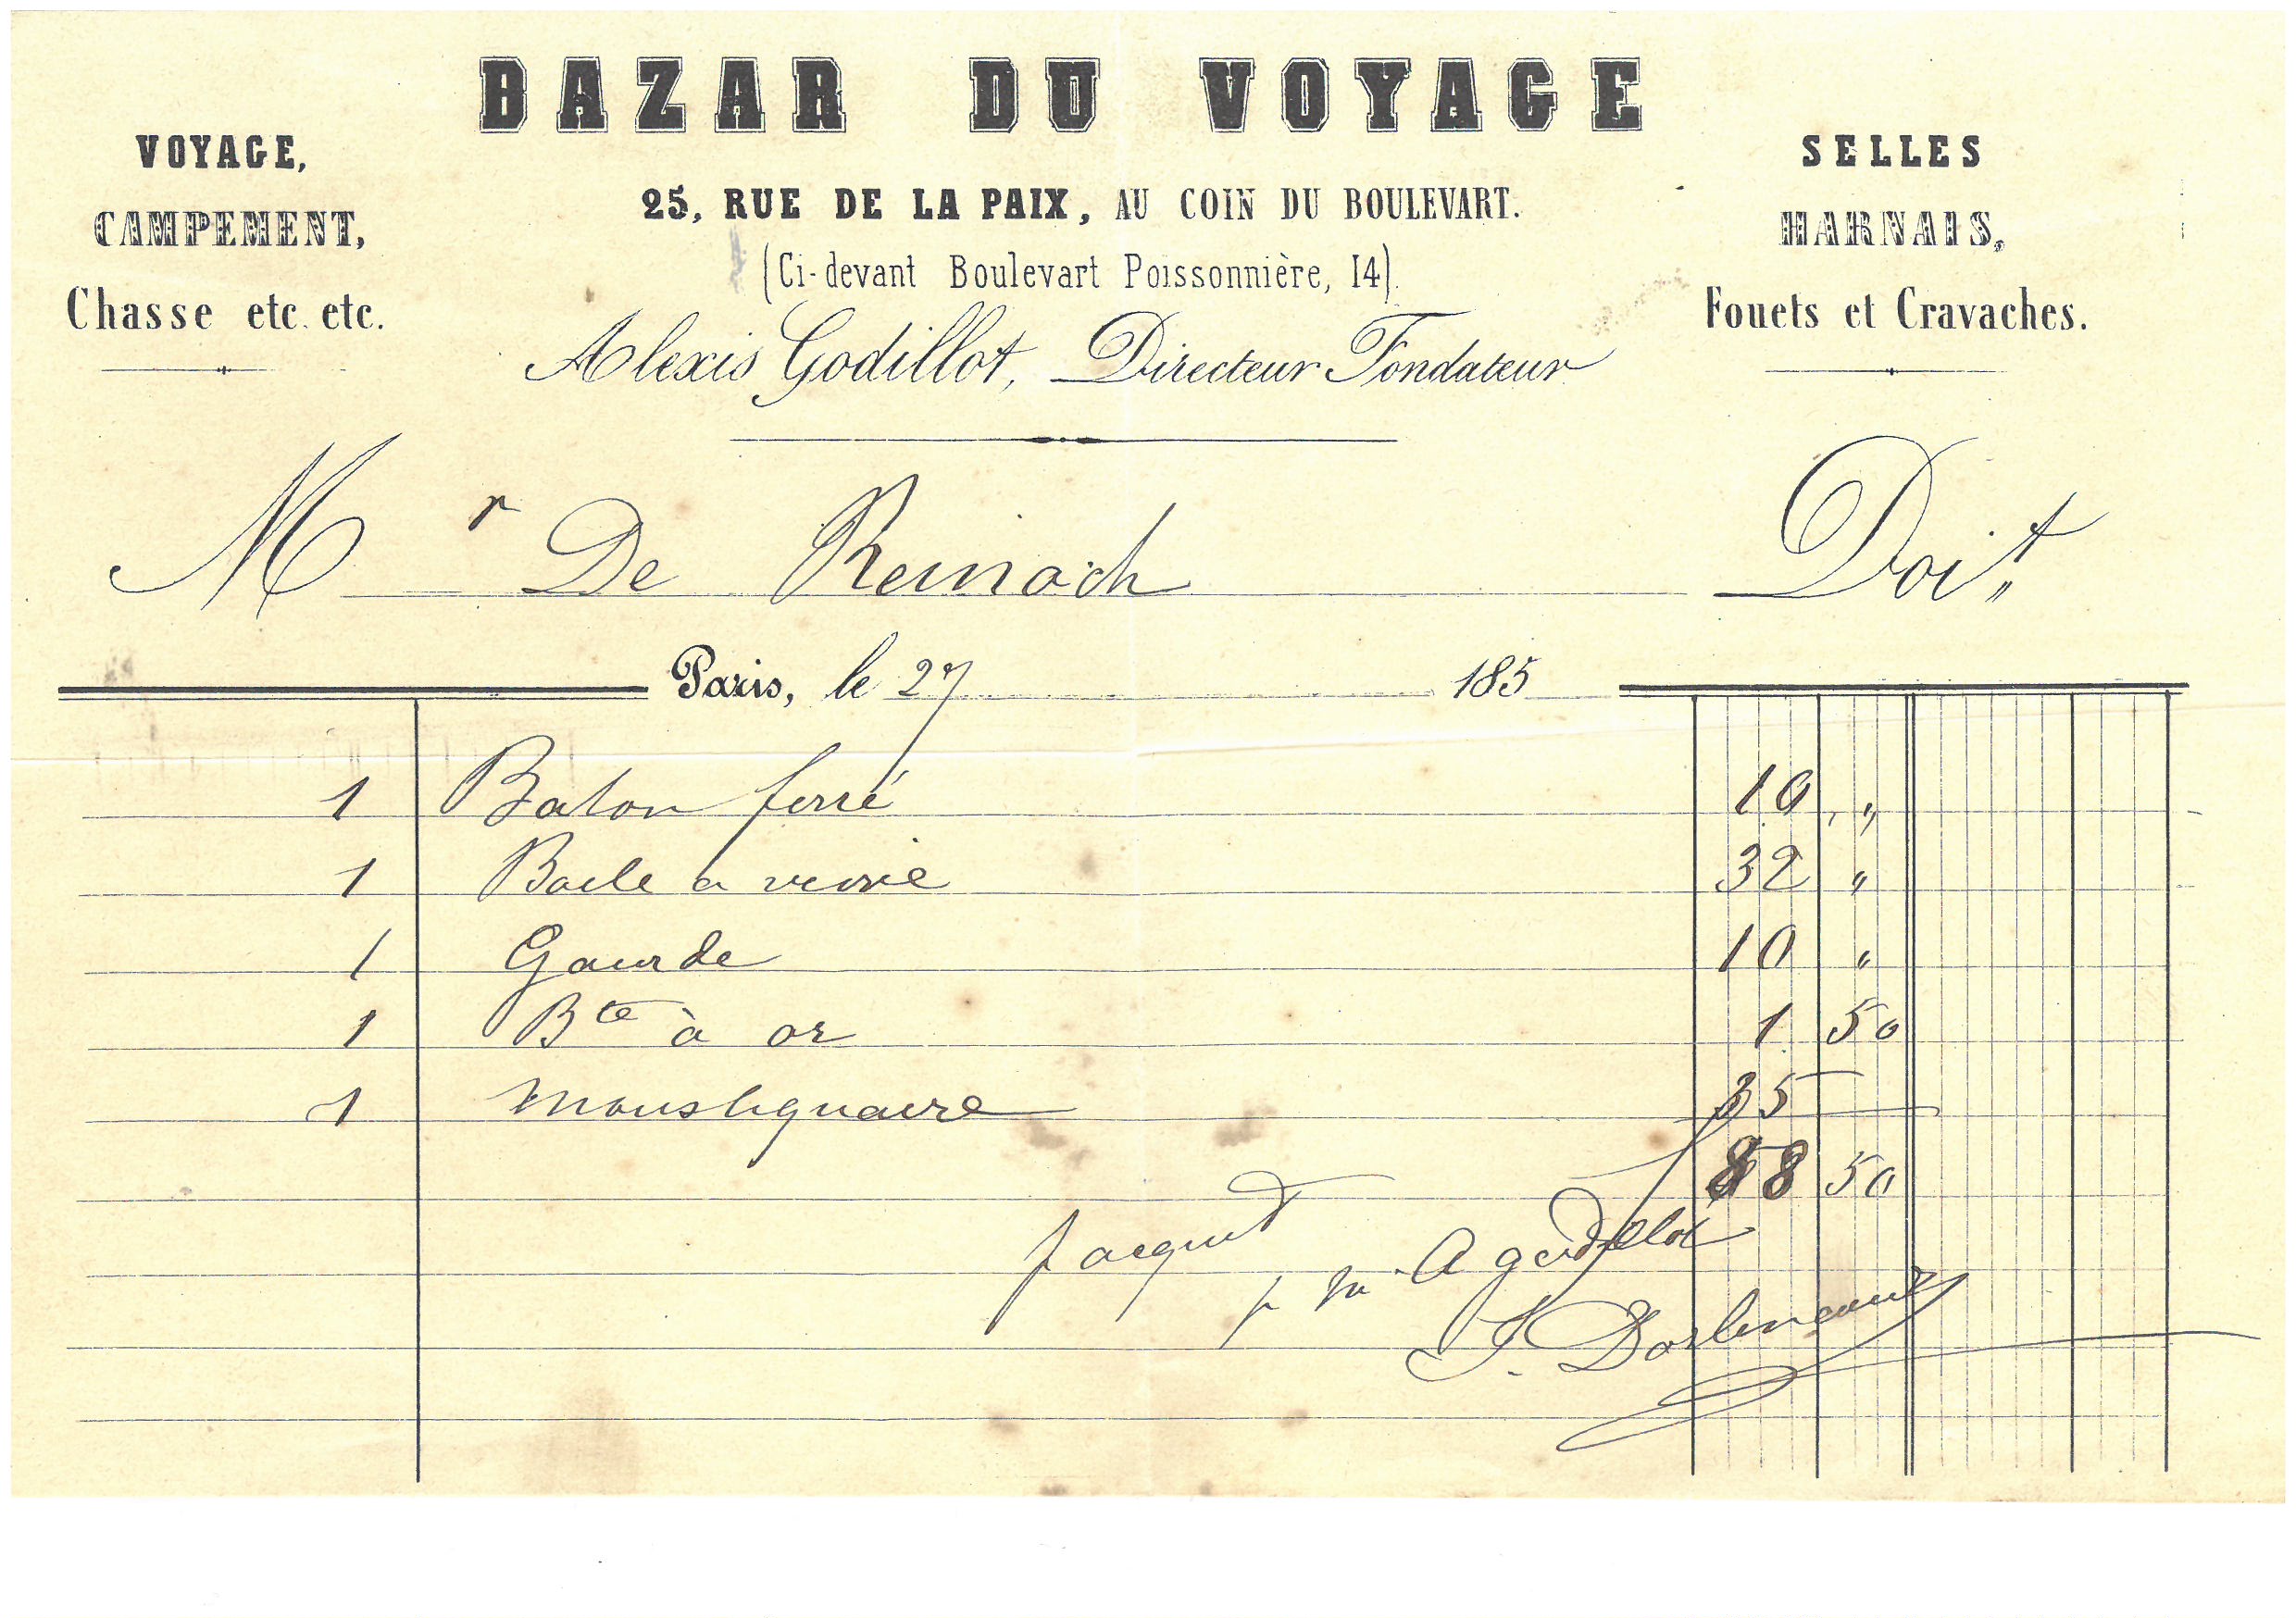 BAZAR DU VOYAGE
VOYAGE,
CAMPEMENT,
Chasse etc. etc.
25, RUE DE LA PAIX, AU COIN DU BOULEVART.
(Ci-devant Boulevart Poissonnière, 14).
Alexis Godillot, Directeur Fondateur
SELLES
HARNAIS,
Fouets et Cravaches.
Mr De Reinach Doit
Paris, le 27 185
1 Baton ferré 10 "
1 32 "
1 Gourde 10 "
1 Bte à or 1 50
1 moustiquaire 35
88 50
p acquit
A godillot